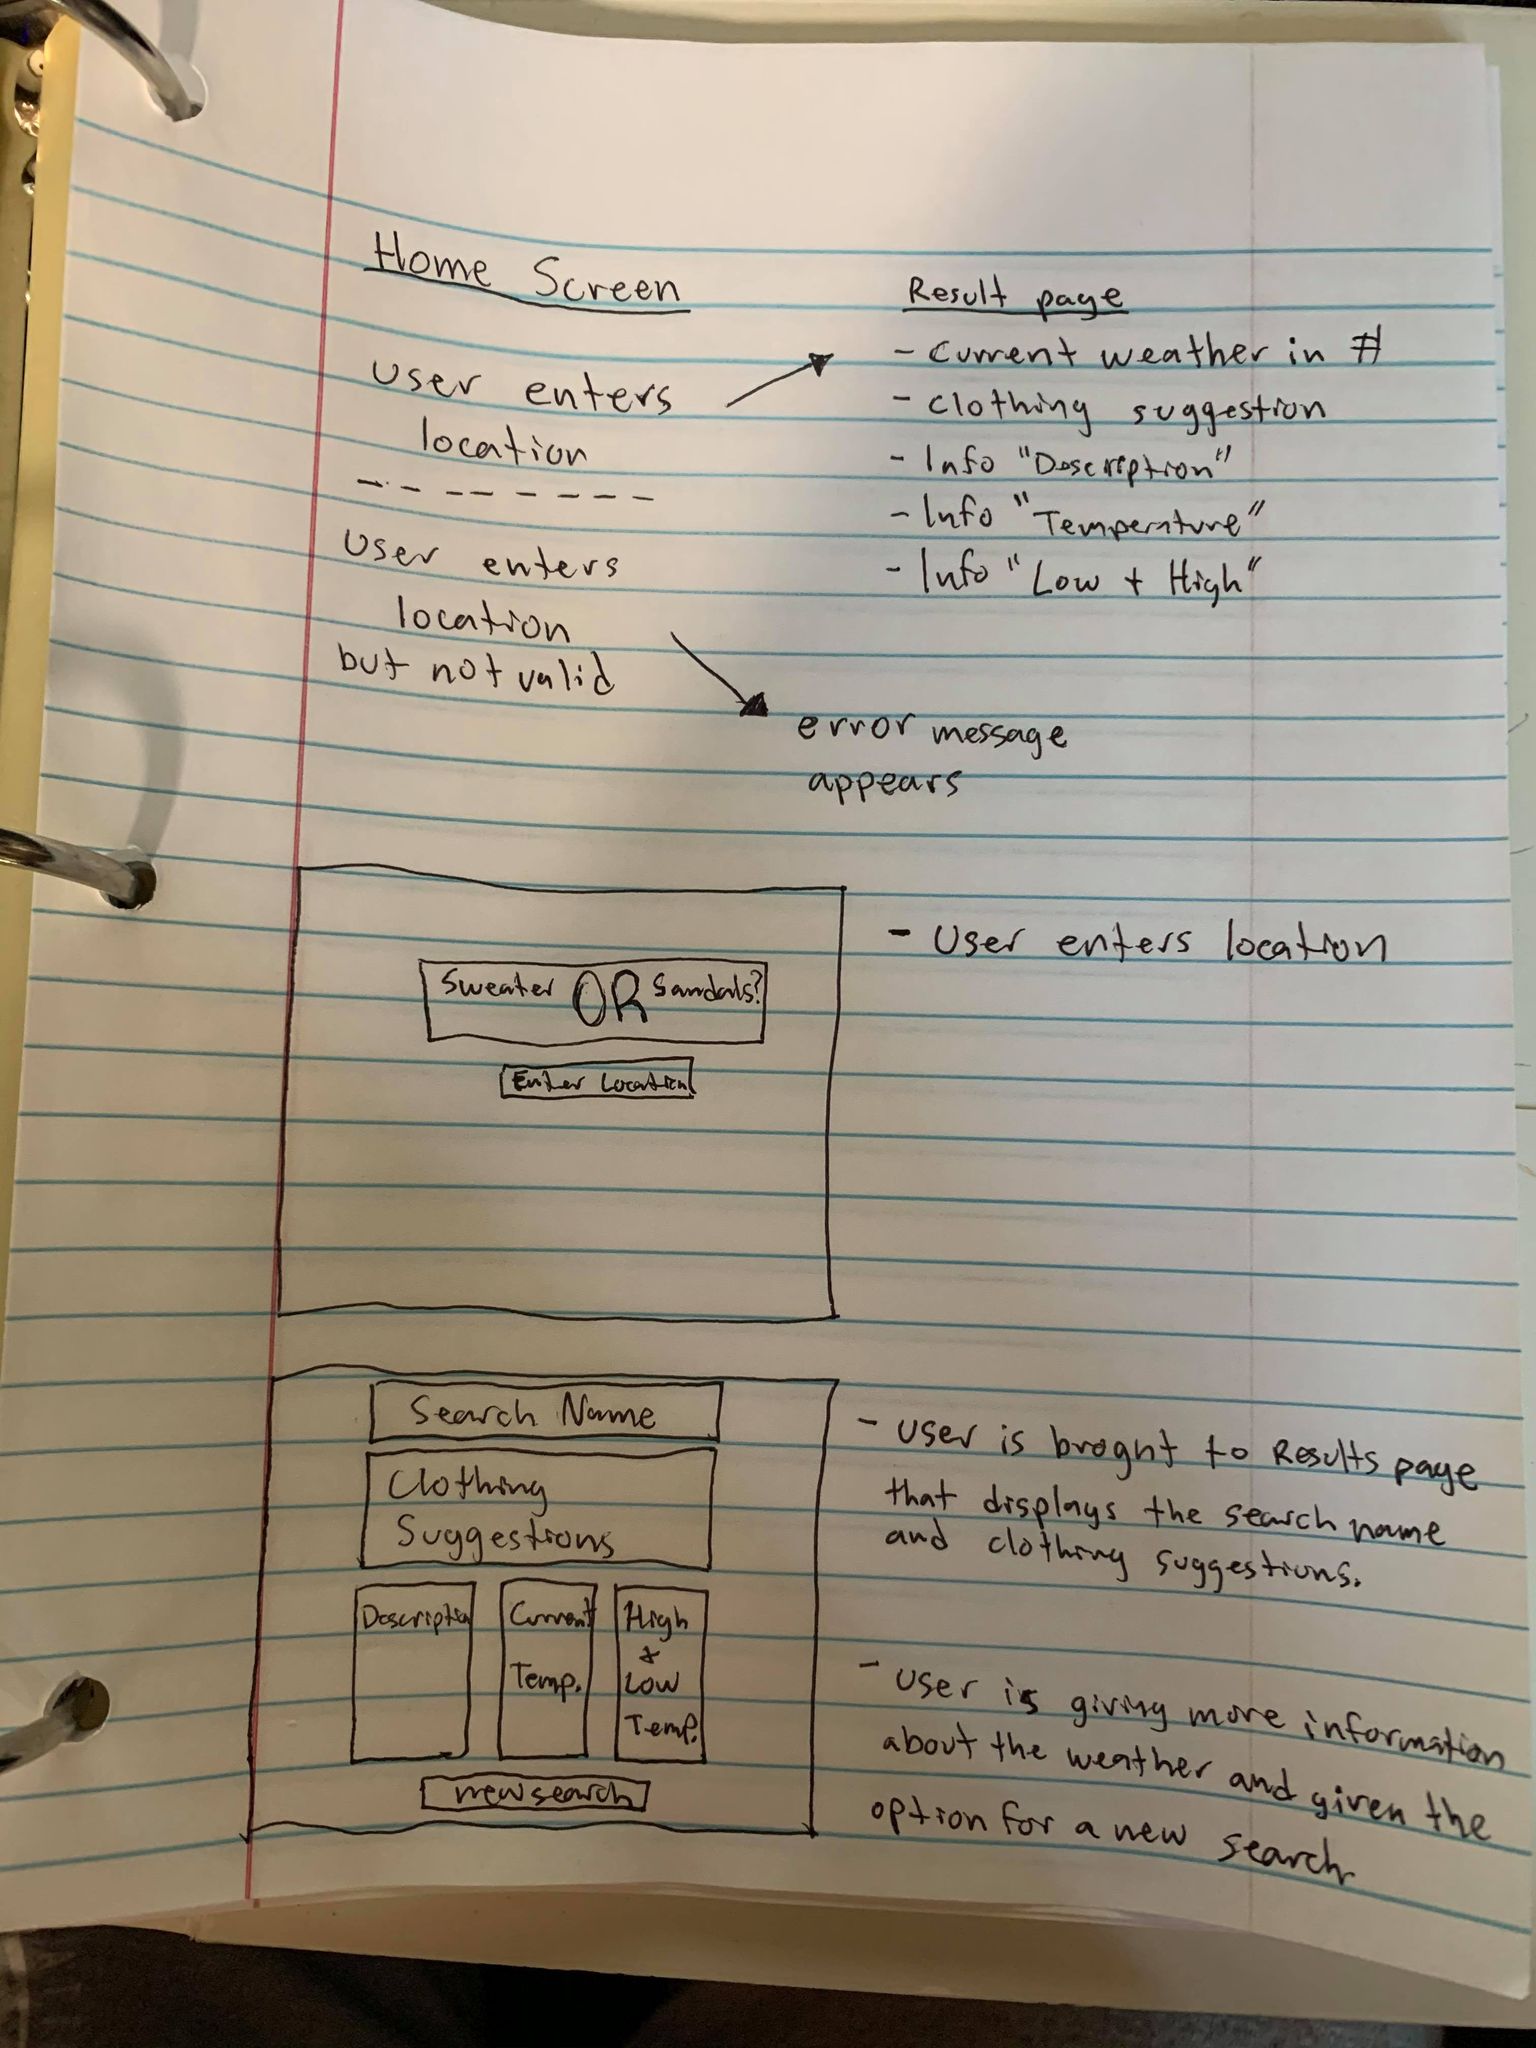 Home Screen
User enters
location
User enters
location
but not valid
Result page
- Current weather in #
- Clothing suggestion
- Info "Description"
- Info "Temperature"
- Info "Low + High"
error message
appears
Sweater OR Sandals?
Enter Location
- User enters location
Search Name
Clothing
Suggestions
Description
Current
Temp.
High
&
Low
Temp.
new search
- User is broght to Results page
that displays the search name
and clothing suggestions.
- User is giving more information
about the weather and given the
option for a new search